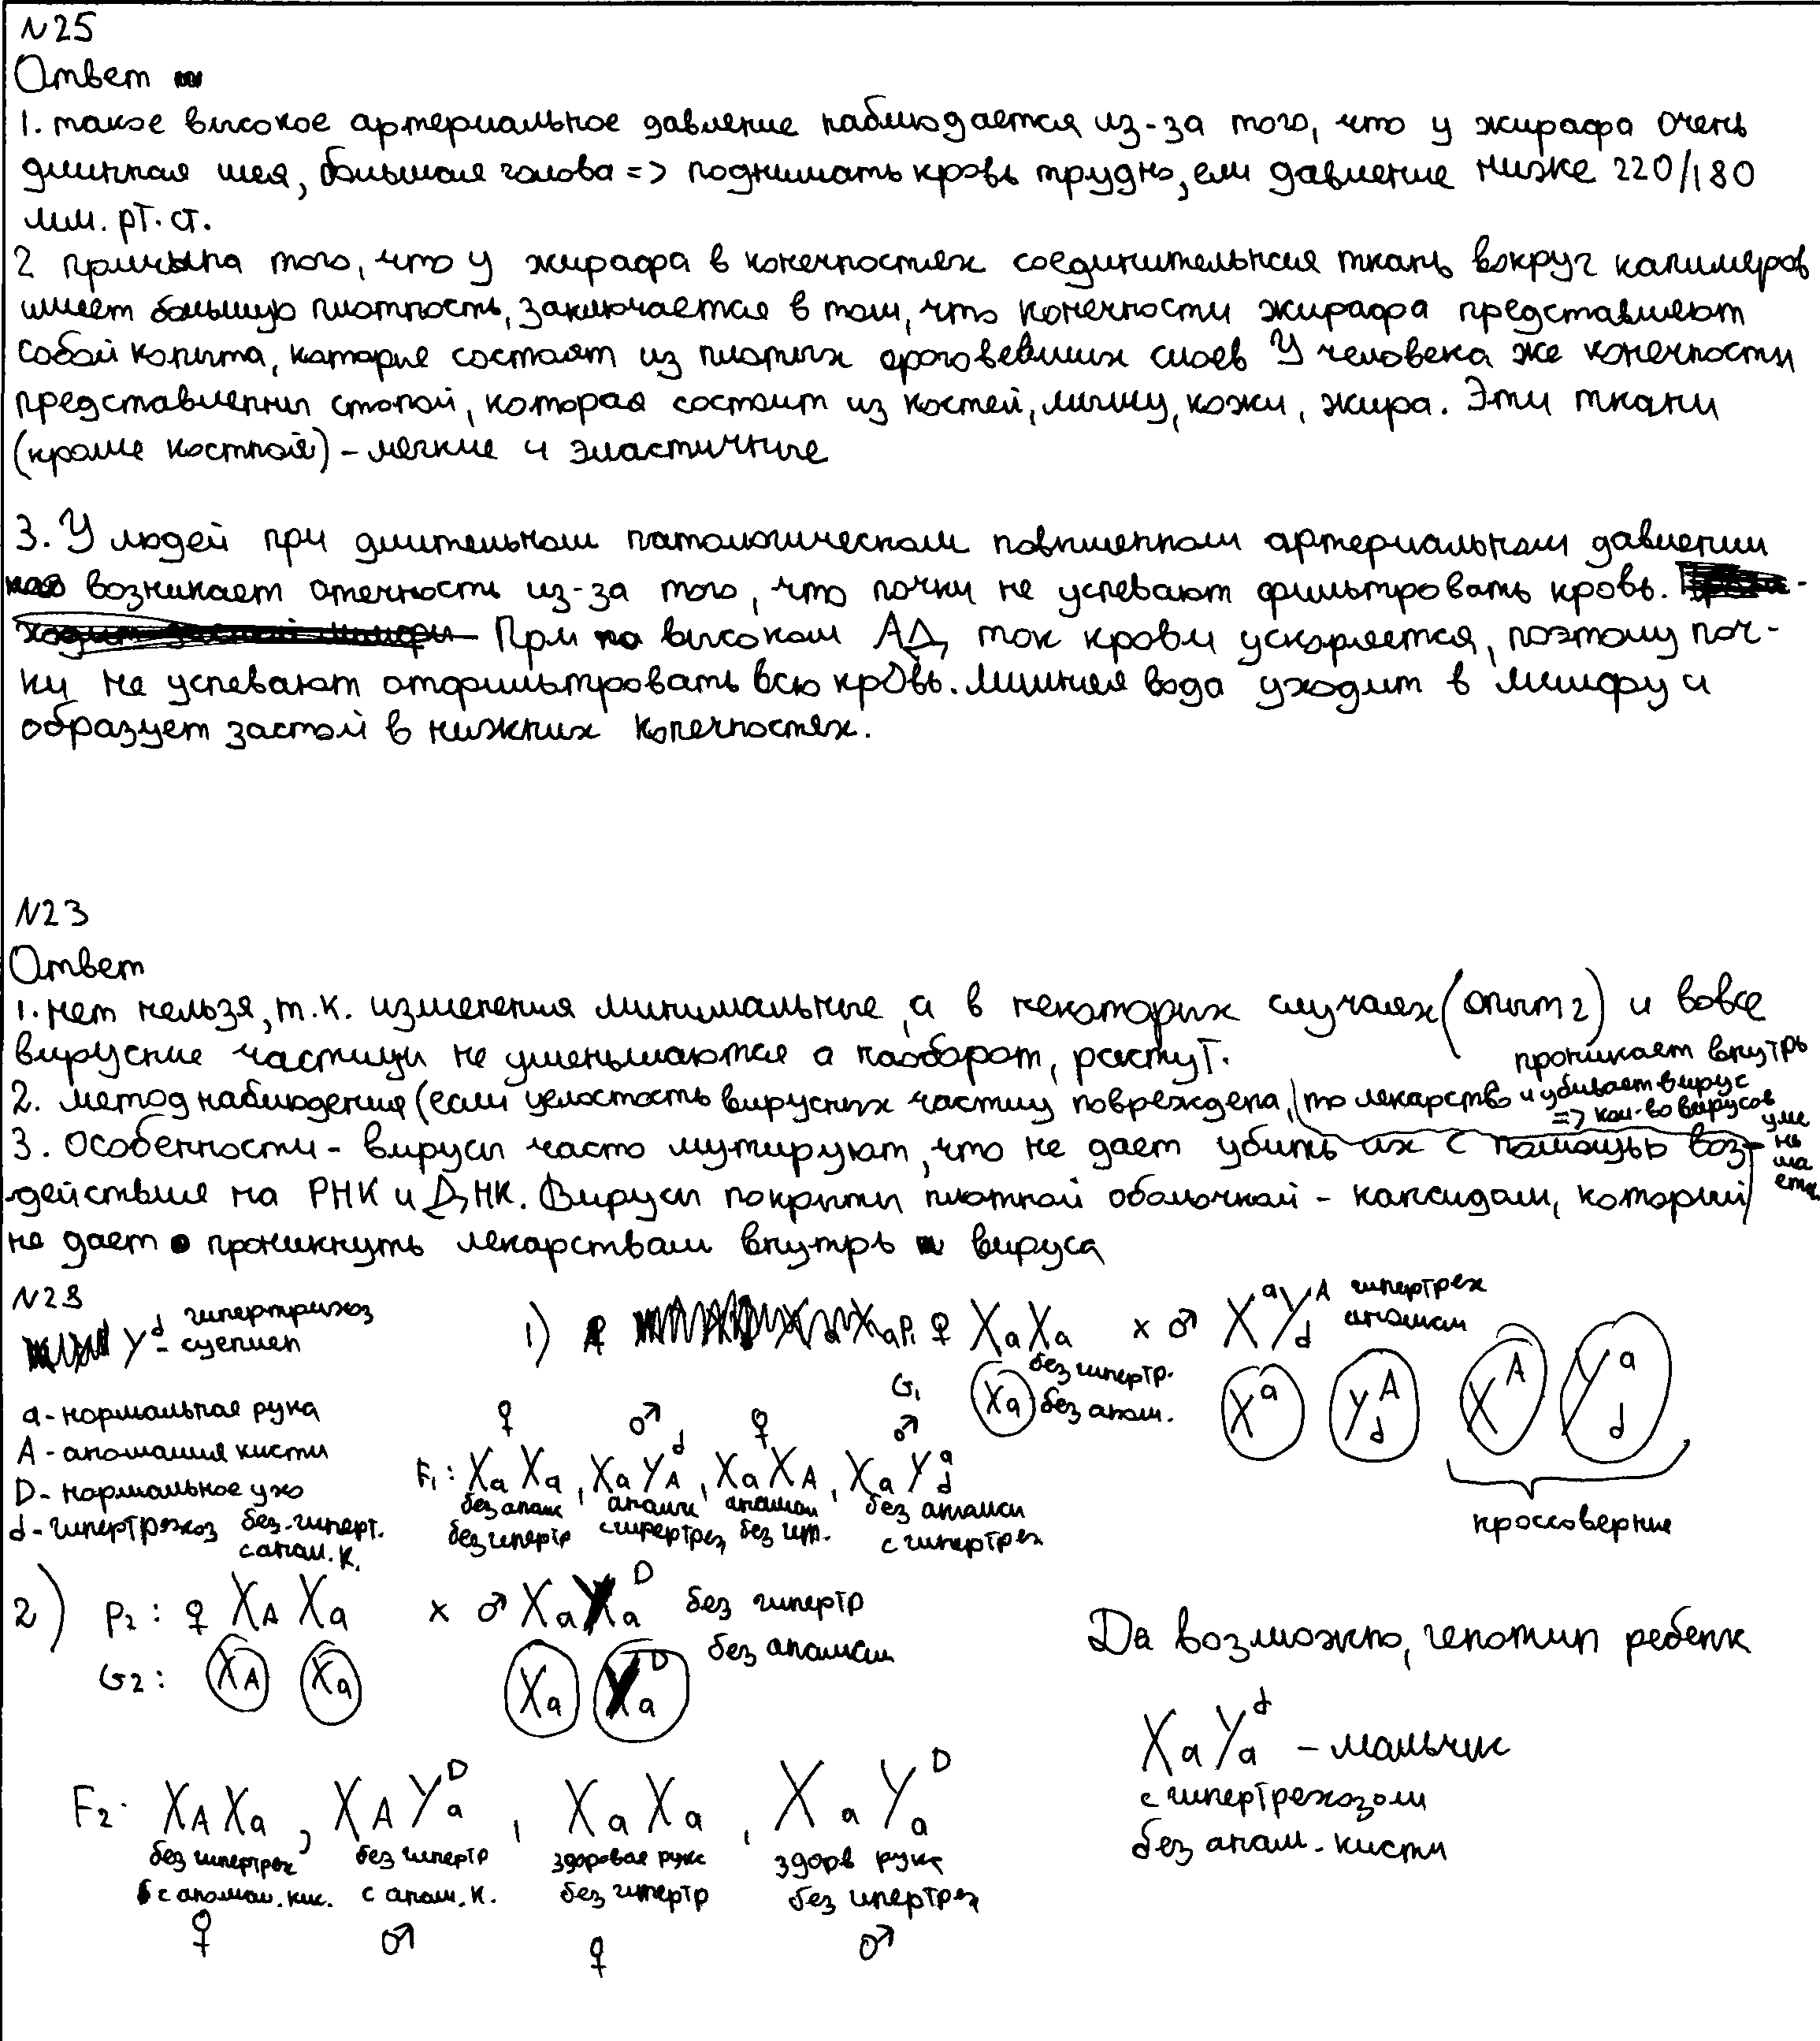 N25
Ответ
1. такое высокое артериальное давление наблюдается из-за того, что у жирафа очень
длинная шея, большая голова => поднимать кровь трудно, если давление ниже 220/180
мм. рт. ст.
2 причина того, что у жирафа в конечностях соединительная ткань вокруг капилляров
имеет большую плотность, заключается в том, что конечности жирафа представляют
собой копыта, которые состоят из плотных ороговевших слоев У человека же конечности
представлены стопой, которая состоит из костей, мышц, кожи, жира. Эти ткани
(кроме костной) - мягкие и эластичные
3. У людей при длительном патологическом повышенном артериальном давлении
возникает отечность из-за того, что почки не успевают фильтровать кровь.
При высоком АД ток крови ускоряется, поэтому поч-
ки не успевают отфильтровать всю кровь. Лишняя вода уходит в лимфу и
образует застой в нижних конечностях.
N23
Ответ
1. нет нельзя, т.к. изменения минимальные, а в некоторых случаях (опыт 2) и вовсе
вирусные частицы не уменьшаются а наоборот, растут.
2. метод наблюдения (если целостность вирусных частиц повреждена, то лекарство проникает внутрь и убивает вирус => кол-во вирусов уменьшается)
3. Особенности - вирусы часто мутируют, что не дает убить их с помощью воз-
действия на РНК и ДНК. Вирусы покрыты плотной оболочкой - капсидом, который
не дает проникнуть лекарствам внутрь вируса
N28
Y^d - гипертрихоз
сцеплен
a - нормальная рука
A - аномалия кисти
D - нормальное ухо
d - гипертрехоз
1) P₁ ♀ XaXa x ♂ X^aY_d^A гипертрех
аномал
без гипертр.
без аном.
G₁ (Xa) (X^a) (Y_d^A) (X^A) (Y_d^a)
кроссоверные
♀ ♂ ♀ ♂
F₁: XaXa, XaY_A^d, XaXA, XaY_d^a
без аном аномал аномал без аномал
без гипертр с гипертрех без гип. с гипертрех
без гиперт.
с аном. к.
2) P₂: ♀ XAXa x ♂ XaYa^D без гипертр
без аномал
G₂: (XA) (Xa) (Xa) (Ya^D)
F₂: XAXa, XAYa^D, XaXa, XaYa^D
без гипертрех без гипертр здоровая рука здоров рука
с аномал. кис. с аном. к. без гипертр без гипертрех
♀ ♂ ♀ ♂
Да возможно, генотип ребенк
XaYa^d - мальчик
с гипертрехозом
без аном. кисти